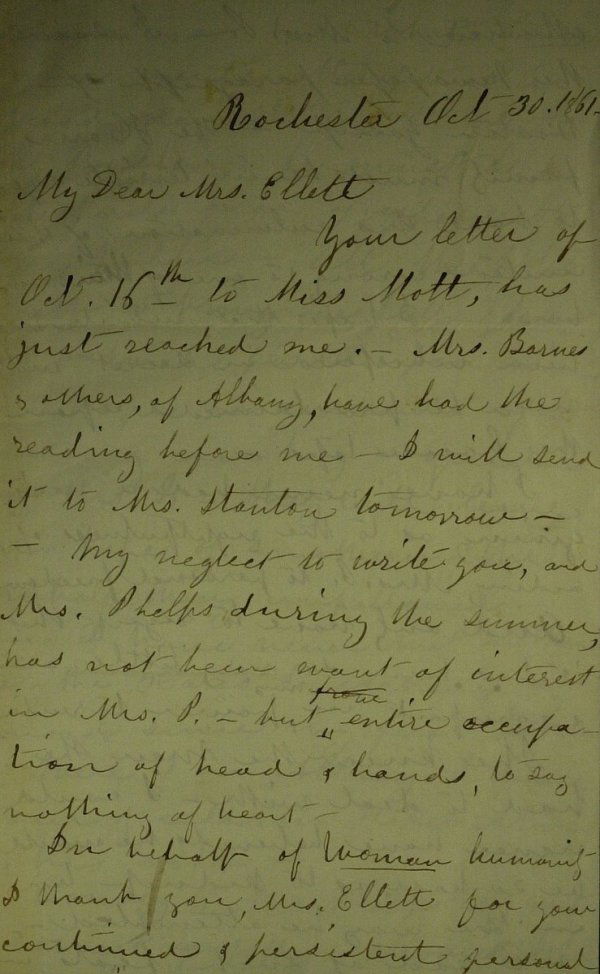 Rochester Oct 30. 1861-
My Dear Mrs. Ellett
Your letter of
Oct. 16th to Miss Mott, has
just reached me. — Mrs. Barnes
& others, of Albany, have had the
reading before me — I will send
it to Mrs. Stanton tomorrow —
— My neglect to write you, and
Mrs. Phelps during the summer,
has not been want of interest
in Mrs. P. — but entire occupa-
tion of head & hands, to say
nothing of heart —
In behalf of Woman humanity
I thank you, Mrs. Ellett for your
continued & persistent personal